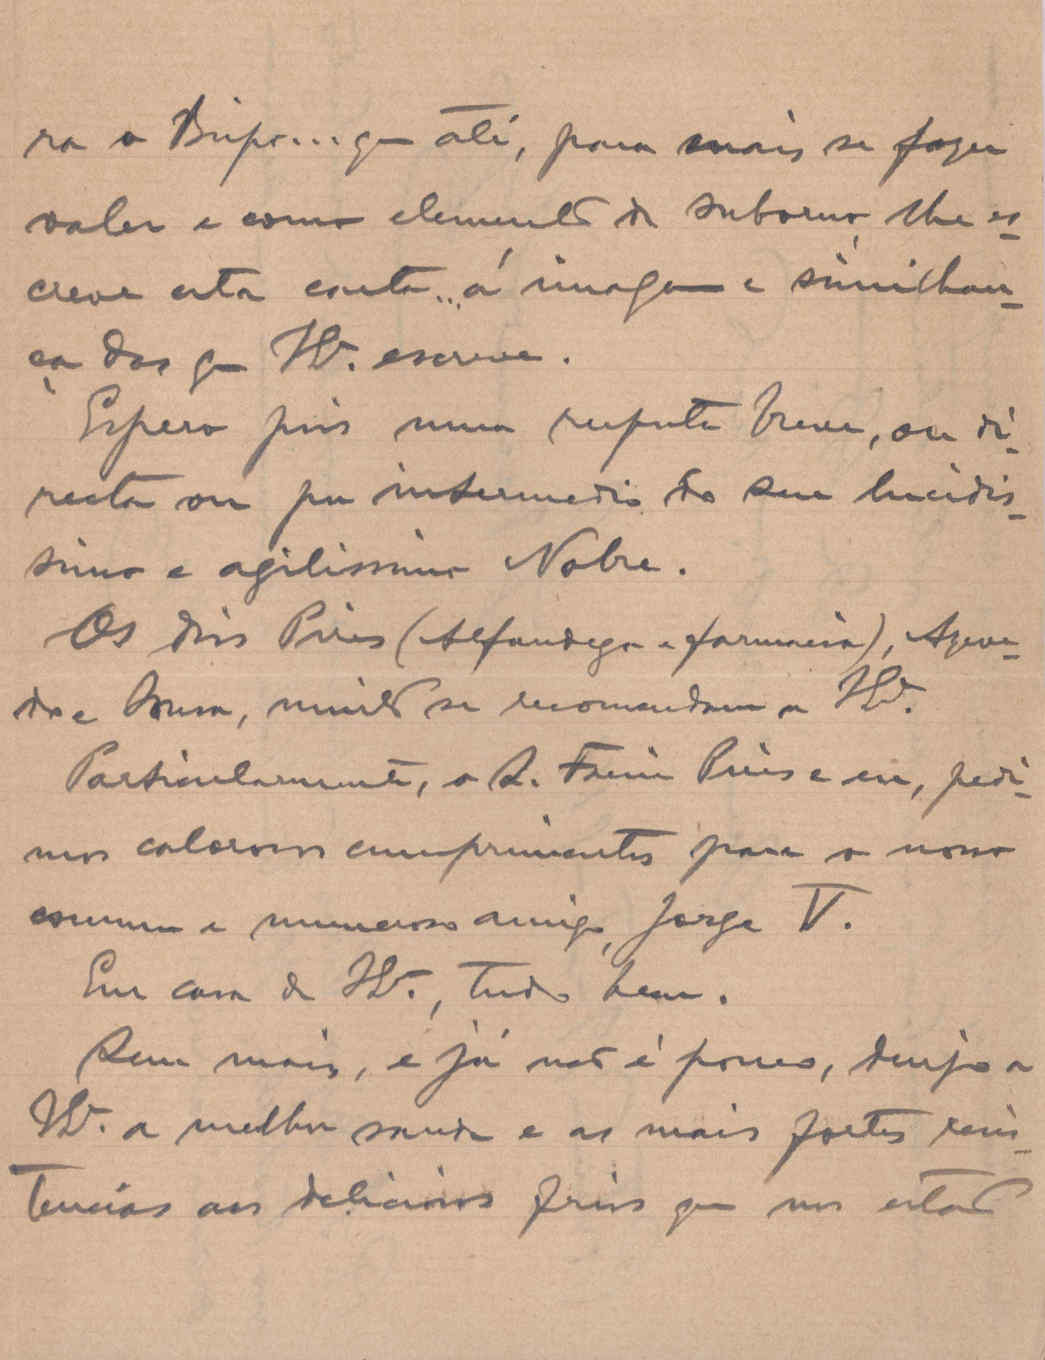 ra o Bispo... que até, para mais se fazer
valer e como elemento de suborno, lhe es-
creve esta carta... á imagem e similhan-
ça das que escreve.
Espero pois uma resposta breve, ou di-
recta ou por intermedio do seu lucidis-
simo e agilissimo Nobre.
Os dois Pires (Alfandega e farmacia), Azeve-
do e Sousa, muito se recomendam a
Particularmente, o S. Pires e eu, pedi-
mos calorosos cumprimentos para o nosso
comum e numeroso amigo, Jorge V.
Em casa de tudo bem.
Sem mais, e já não é pouco, dirijo a
a melhor saude e as mais fortes resis-
tencias aos deliciosos frios que nos estão